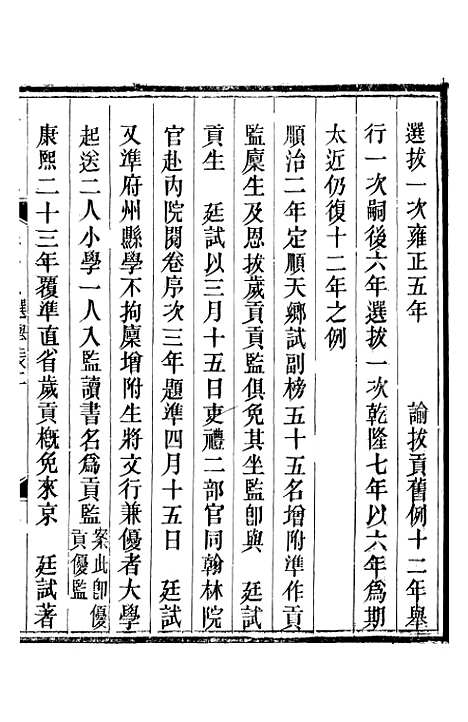 選拔一次雍正五年　　諭拔貢舊例十二年舉
行一次嗣後六年選拔一次乾隆七年以六年爲期
太近仍復十二年之例
順治二年定順天鄉試副榜五十五名增附準作貢
監廩生及恩拔歲貢貢監俱免其坐監卽與　廷試
貢生　廷試以三月十五日吏禮二部官同翰林院
官赴內院閱卷序次三年題準四月十五日　廷試
又準府州縣學不拘廩增附生將文行兼優者大學
起送二人小學一人入監讀書名爲貢監案此卽優貢優監
康熙二十三年覆準直省歲貢槪免來京　廷試著